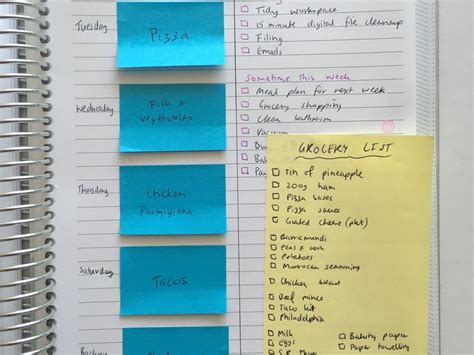 Tuesday
Pizza
Wednesday
Fish &
vegetables
Thursday
Chicken
Parmigiana
Saturday
Tacos
Tidy workspace
15 minute digital file cleanup
Filing
Emails
Sometime this week
Meal plan for next week
Grocery shopping
Clean bathroom
Vacuum
GROCERY LIST
Tin of pineapple
200g ham
Pizza bases
Pizza sauce
Grated cheese (pkt)
Barramundi
Peas & corn
Potatoes
Moroccan seasoning
Chicken breast
Beef mince
Taco kit
Philadelphia
Milk
Eggs
Baking paper
Paper towelling